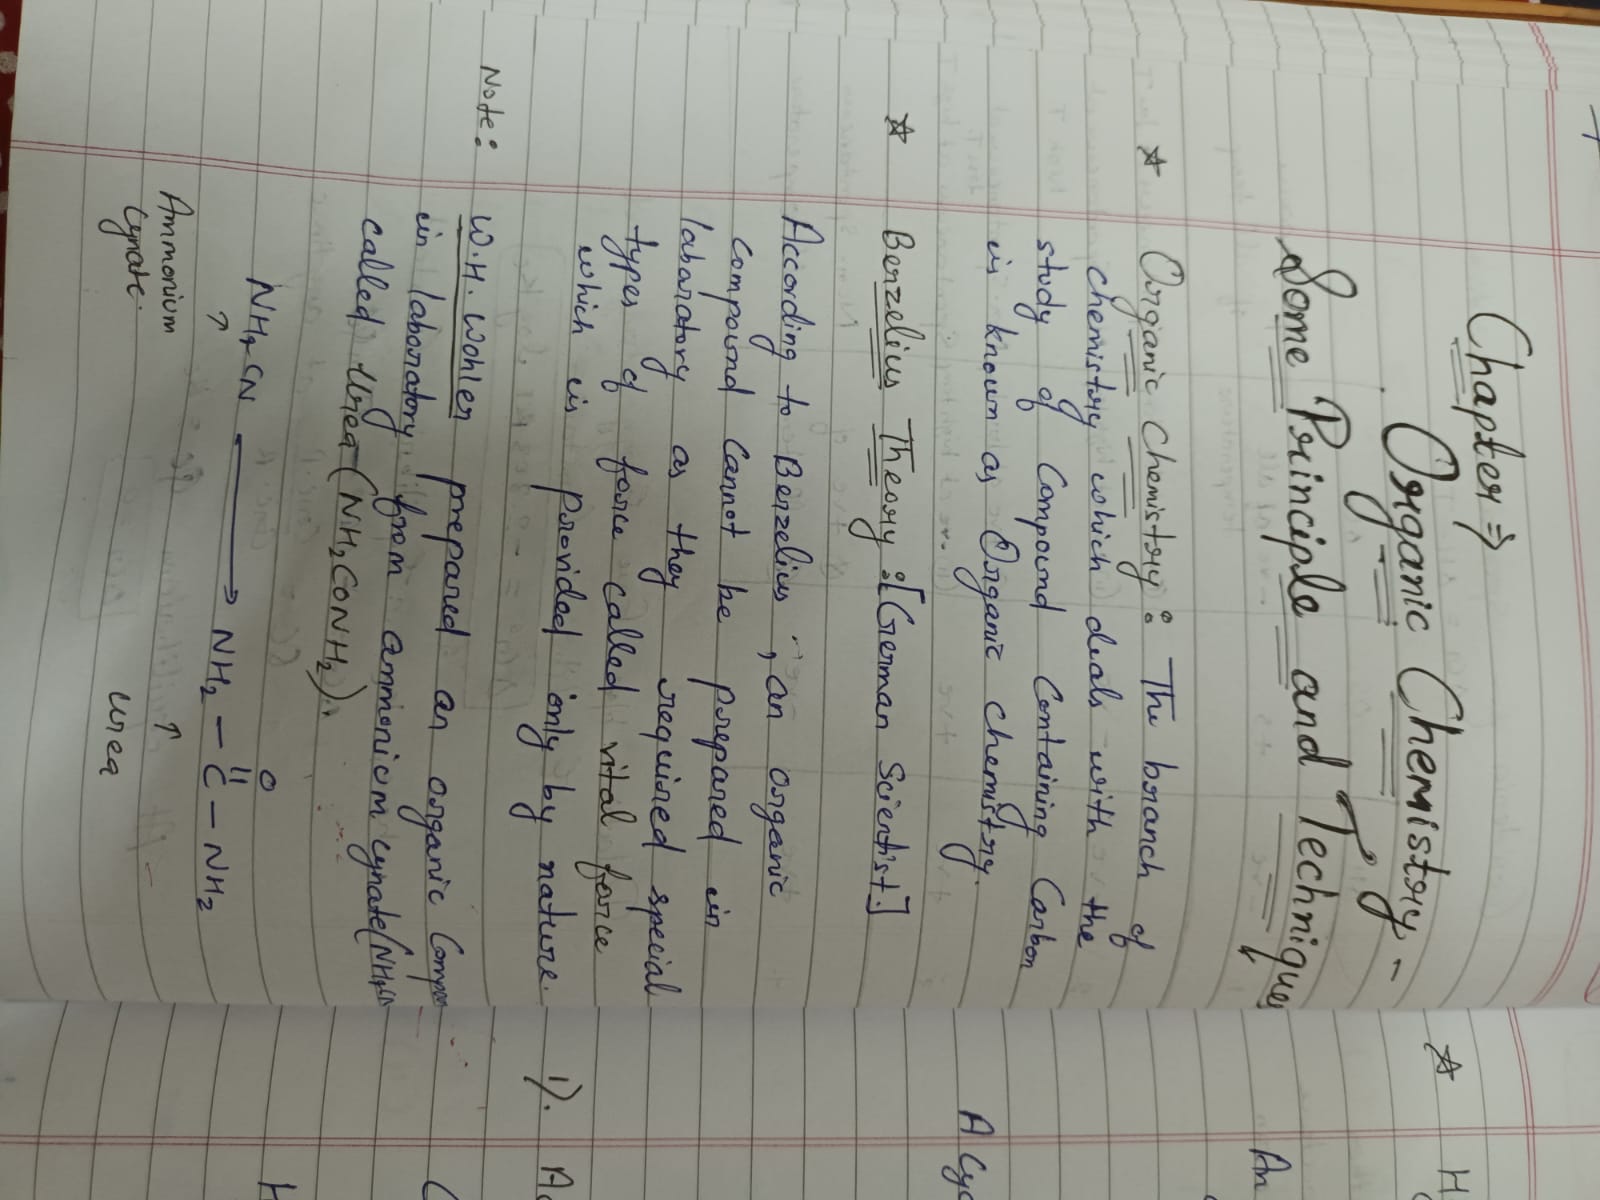 Chapter ⇒
Organic Chemistry -
Some Principle and Techniques
☆ Organic Chemistry : The branch of
chemistry which deals with the
study of Compound Containing Carbon
is known as Organic chemistry.
☆ Berzelius Theory : [German Scientist.]
According to Berzelius, an organic
compound cannot be prepared in
labaratory as they required special
types of force called vital force
which is provided only by nature.
Note: W.H. Wohler prepared an organic Compou
in laboratory from ammonium cynate (NH4CN
called Urea (NH2CONH2).
NH4CN ⟶ NH2 - C - NH2
O
||
↑
Ammonium
Cynate.
↑
Urea
☆ H
An
A Cyc
1). A
H